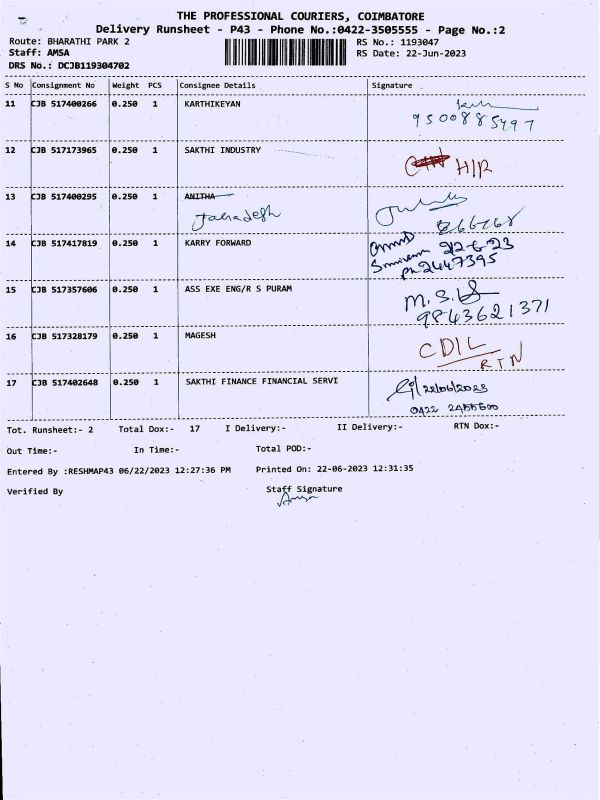 THE PROFESSIONAL COURIERS, COIMBATORE
Delivery Runsheet - P43 - Phone No.:0422-3505555 - Page No.:2
Route: BHARATHI PARK 2 RS No.: 1193047
Staff: AMSA RS Date: 22-Jun-2023
DRS No.: DCJB119304702
S No Consignment No Weight PCS Consignee Details Signature
11 CJB 517400266 0.250 1 KARTHIKEYAN
9500885497
12 CJB 517173965 0.250 1 SAKTHI INDUSTRY
H/R
13 CJB 517400295 0.250 1 ANITHA
266768
14 CJB 517417819 0.250 1 KARRY FORWARD
22-6-23
Ph 2447395
15 CJB 517357606 0.250 1 ASS EXE ENG/R S PURAM
M.S.
9843621371
16 CJB 517328179 0.250 1 MAGESH
CDIL
RTN
17 CJB 517402648 0.250 1 SAKTHI FINANCE FINANCIAL SERVI
22/06/2023
0422 2455600
Tot. Runsheet:- 2 Total Dox:- 17 I Delivery:- II Delivery:- RTN Dox:-
Out Time:- In Time:- Total POD:-
Entered By :RESHMAP43 06/22/2023 12:27:36 PM Printed On: 22-06-2023 12:31:35
Verified By Staff Signature
Amsa